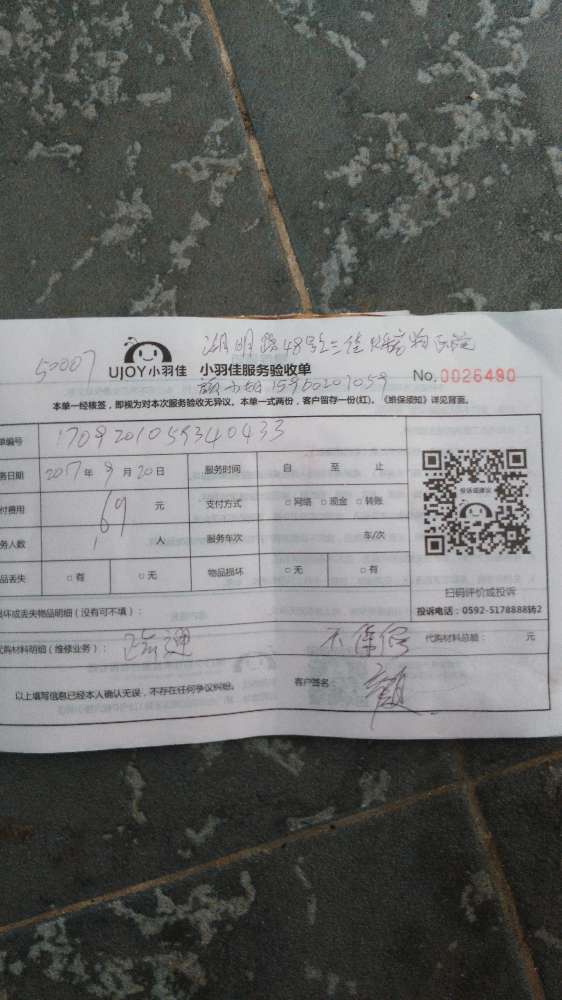 湖明路48号之
50007
UJOY小羽佳 小羽佳服务验收单 No.0026490
本单一经核签，即视为对本次服务验收无异议。本单一式两份，客户留存一份(红)。《维保须知》详见背面。
单编号 1709201059340433
务日期 2017年9月20日 服务时间 自 至 止
付费用 69 元 支付方式 □网络 □现金 □转账
务人数 1 人 服务车次 车/次
品丢失 □有 □无 物品损坏 □无 □有
投诉或建议
扫码评价或投诉
投诉电话：0592-5178888转2
损坏或丢失物品明细（没有可不填）：
代购材料明细（维修业务）： 疏通 不保修 代购材料总额： 元
以上填写信息已经本人确认无误，不存在任何争议纠纷。 客户签名： 颜